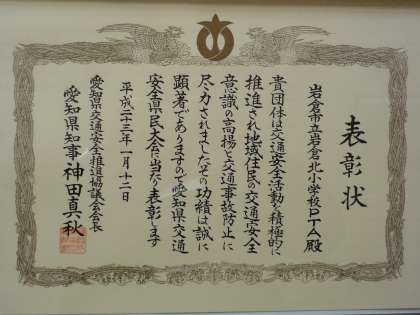 表彰状
岩倉市立岩倉北小学校PTA殿
貴団体は交通安全活動を積極的に
推進され地域住民の交通安全
意識の高揚と交通事故防止に
尽力されましたその功績は誠に
顕著でありますので愛知県交通
安全県民大会に当たり表彰します
平成二十三年一月十二日
愛知県交通安全推進協議会会長
愛知県知事神田真秋